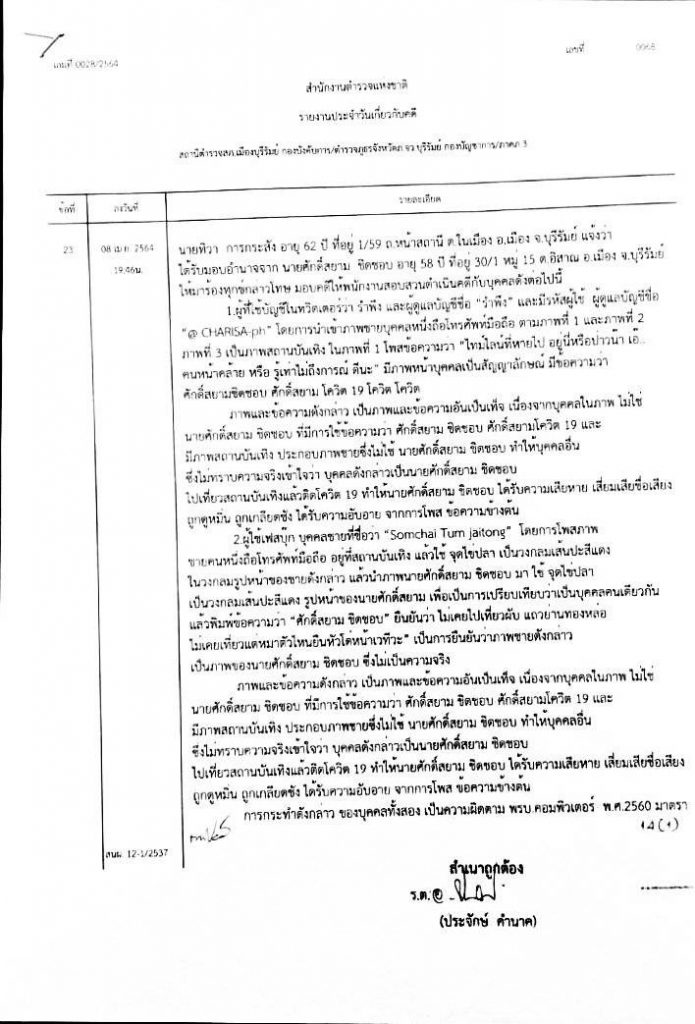 เล่มที่ 0028/2564
เลขที่ 0068
สำนักงานตำรวจแห่งชาติ
รายงานประจำวันเกี่ยวกับคดี
สถานีตำรวจสภ.เมืองบุรีรัมย์ กองบังคับการ/ตำรวจภูธรจังหวัดภ.จว.บุรีรัมย์ กองบัญชาการ/ภาคภ.3
ข้อที่ ลงวันที่ รายละเอียด
23 08 เม.ย. 2564 นายทิวา การกระสัง อายุ 62 ปี ที่อยู่ 1/59 ถ.หน้าสถานี ต.ในเมือง อ.เมือง จ.บุรีรัมย์ แจ้งว่า
19.46น. ได้รับมอบอำนาจจาก นายศักดิ์สยาม ชิดชอบ อายุ 58 ปี ที่อยู่ 30/1 หมู่ 15 ต.อิสาณ อ.เมือง จ.บุรีรัมย์
ให้มาร้องทุกข์กล่าวโทษ มอบคดีให้พนักงานสอบสวนดำเนินคดีกับบุคคลดังต่อไปนี้
1.ผู้ที่ใช้บัญชีในทวิตเตอร์ว่า รำพึง และผู้ดูแลบัญชีชื่อ "รำพึง" และมีรหัสผู้ใช้ ผู้ดูแลบัญชีชื่อ
"@ CHARISA-ph" โดยการนำเข้าภาพชายบุคคลหนึ่งถือโทรศัพท์มือถือ ตามภาพที่ 1 และภาพที่ 2
ภาพที่ 3 เป็นภาพสถานบันเทิง ในภาพที่ 1 โพสข้อความว่า "ไทม์ไลน์ที่หายไป อยู่นี่หรือป่าวน้า เอ๊..
คนหน้าคล้าย หรือ รู้เท่าไม่ถึงการณ์ ดีนะ" มีภาพหน้าบุคคลเป็นสัญญาลักษณ์ มีข้อความว่า
ศักดิ์สยามชิดชอบ ศักดิ์สยาม โควิด 19 โควิด โควิด
ภาพและข้อความดังกล่าว เป็นภาพและข้อความอันเป็นเท็จ เนื่องจากบุคคลในภาพ ไม่ใช่
นายศักดิ์สยาม ชิดชอบ ที่มีการใช้ข้อความว่า ศักดิ์สยาม ชิดชอบ ศักดิ์สยามโควิด 19 และ
มีภาพสถานบันเทิง ประกอบภาพชายซึ่งไม่ใช้ นายศักดิ์สยาม ชิดชอบ ทำให้บุคคลอื่น
ซึ่งไม่ทราบความจริงเข้าใจว่า บุคคลดังกล่าวเป็นนายศักดิ์สยาม ชิดชอบ
ไปเที่ยวสถานบันเทิงแล้วติดโควิด 19 ทำให้นายศักดิ์สยาม ชิดชอบ ได้รับความเสียหาย เสื่อมเสียชื่อเสียง
ถูกดูหมิ่น ถูกเกลียดชัง ได้รับความอับอาย จากการโพส ข้อความข้างต้น
2.ผู้ใช้เฟสบุ๊ก บุคคลชายที่ชื่อว่า "Somchai Tum jaitong" โดยการโพสภาพ
ชายคนหนึ่งถือโทรศัพท์มือถือ อยู่ที่สถานบันเทิง แล้วใช้ จุดไข่ปลา เป็นวงกลมเส้นปะสีแดง
ในวงกลมรูปหน้าของชายดังกล่าว แล้วนำภาพนายศักดิ์สยาม ชิดชอบ มา ใช้ จุดไข่ปลา
เป็นวงกลมเส้นปะสีแดง รูปหน้าของนายศักดิ์สยาม เพื่อเป็นการเปรียบเทียบว่าเป็นบุคคลคนเดียวกัน
แล้วพิมพ์ข้อความว่า "ศักดิ์สยาม ชิดชอบ" ยืนยันว่า ไม่เคยไปเที่ยวผับ แถวย่านทองหล่อ
ไม่เคยเที่ยวแต่หมาตัวไหนยืนหัวโด่หน้าเวทีวะ" เป็นการยืนยันว่าภาพชายดังกล่าว
เป็นภาพของนายศักดิ์สยาม ชิดชอบ ซึ่งไม่เป็นความจริง
ภาพและข้อความดังกล่าว เป็นภาพและข้อความอันเป็นเท็จ เนื่องจากบุคคลในภาพ ไม่ใช่
นายศักดิ์สยาม ชิดชอบ ที่มีการใช้ข้อความว่า ศักดิ์สยาม ชิดชอบ ศักดิ์สยามโควิด 19 และ
มีภาพสถานบันเทิง ประกอบภาพชายซึ่งไม่ใช้ นายศักดิ์สยาม ชิดชอบ ทำให้บุคคลอื่น
ซึ่งไม่ทราบความจริงเข้าใจว่า บุคคลดังกล่าวเป็นนายศักดิ์สยาม ชิดชอบ
ไปเที่ยวสถานบันเทิงแล้วติดโควิด 19 ทำให้นายศักดิ์สยาม ชิดชอบ ได้รับความเสียหาย เสื่อมเสียชื่อเสียง
ถูกดูหมิ่น ถูกเกลียดชัง ได้รับความอับอาย จากการโพส ข้อความข้างต้น
การกระทำดังกล่าว ของบุคคลทั้งสอง เป็นความผิดตาม พรบ.คอมพิวเตอร์ พ.ศ.2560 มาตรา
14(1)
สนผ. 12-1/2537
สำเนาถูกต้อง
ร.ต.อ.
(ประจักษ์ คำนาค)